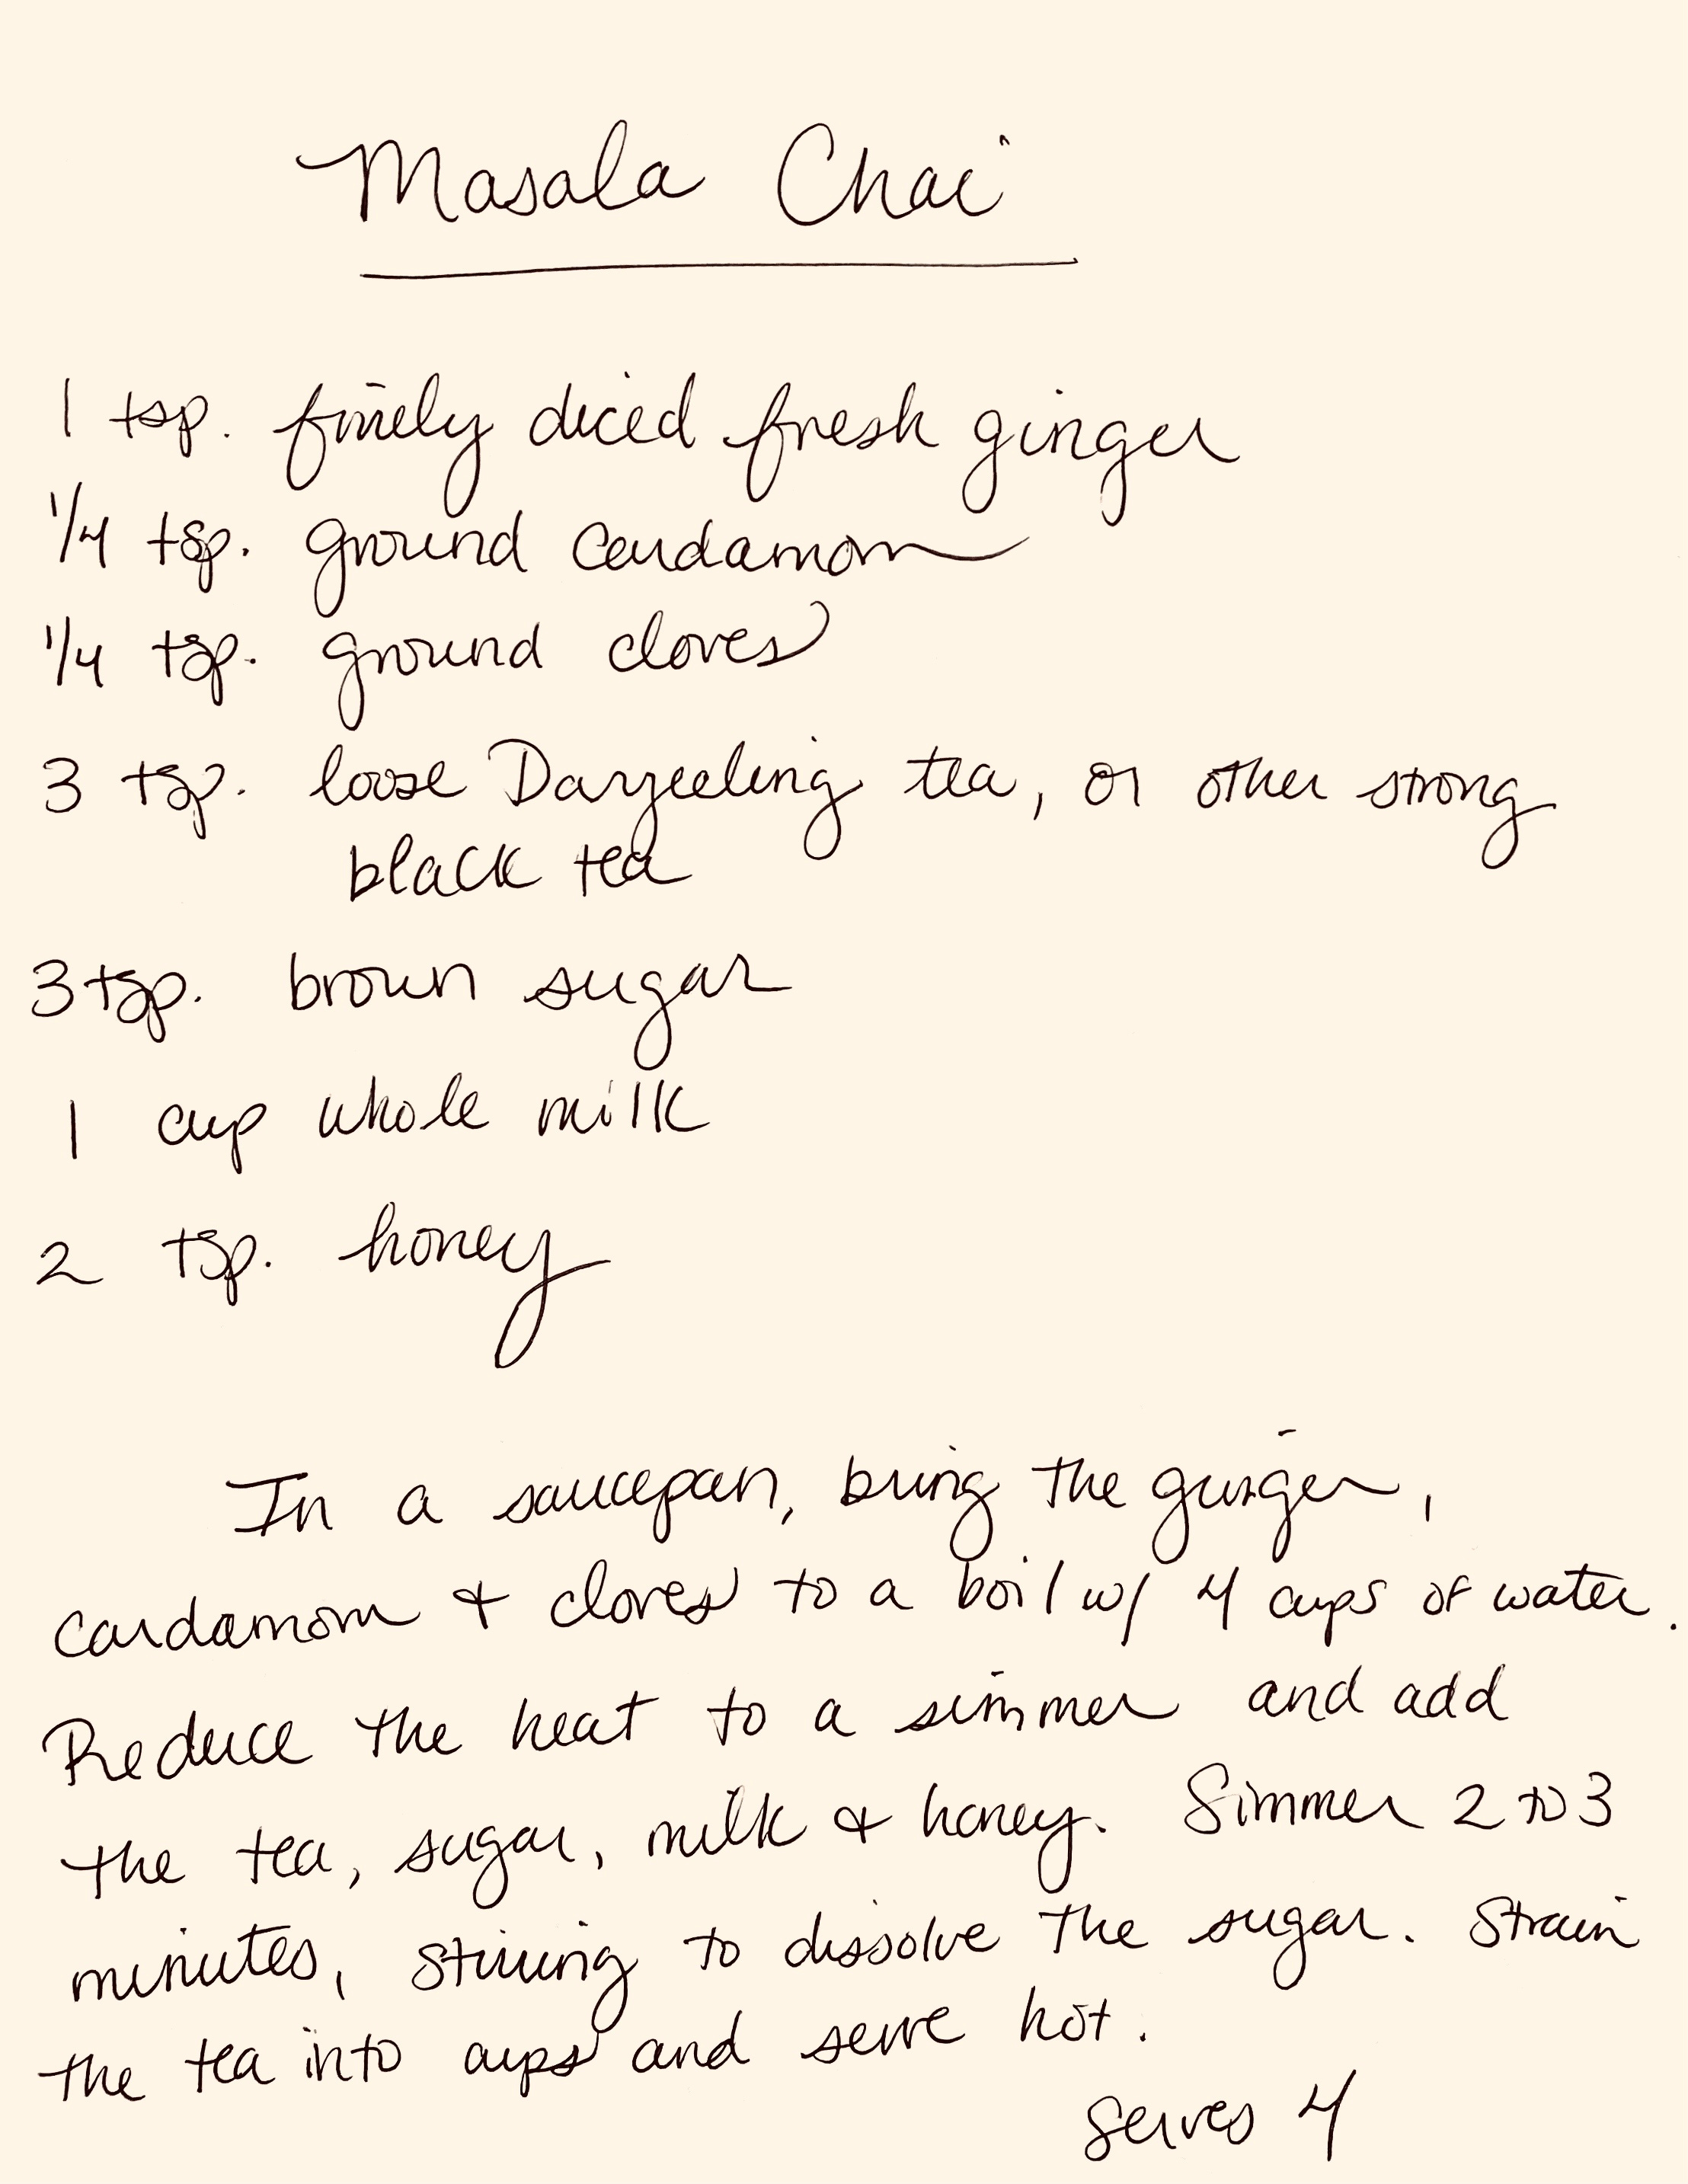 Masala Chai
1 tsp. finely diced fresh ginger
1/4 tsp. ground cardamom
1/4 tsp. ground cloves
3 tsp. loose Darjeeling tea, or other strong
black tea
3 tsp. brown sugar
1 cup whole milk
2 tsp. honey
In a saucepan, bring the ginger,
cardamom & cloves to a boil w/ 4 cups of water.
Reduce the heat to a simmer and add
the tea, sugar, milk & honey. Simmer 2 to 3
minutes, stirring to dissolve the sugar. Strain
the tea into cups and serve hot.
Serves 4